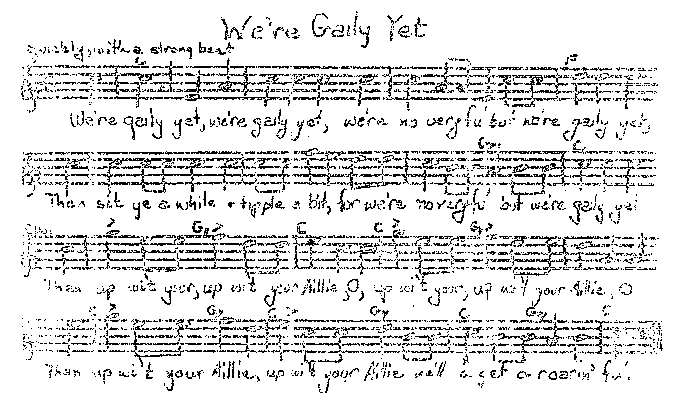 We're Gaily Yet
quickly, with a strong beat
We're gaily yet, we're gaily yet, we're no veryfu' but we're gaily yet,
Then sit ye a while + tipple a bit, for we're no veryfu' but we're gaily yet
C G7 C C G7
Then up wi't your, up wi't your Aillie, O, up wi't your, up wi't your Aillie, O
G7 C G7 C G7 C
Then up wi't your Aillie, up wi't your Aillie we'll a get a roarin' fu'.